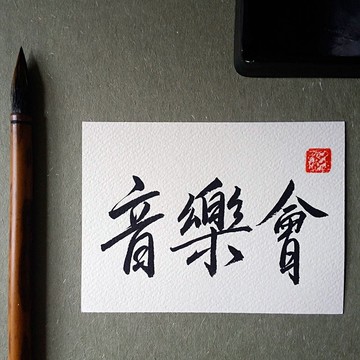 音樂會